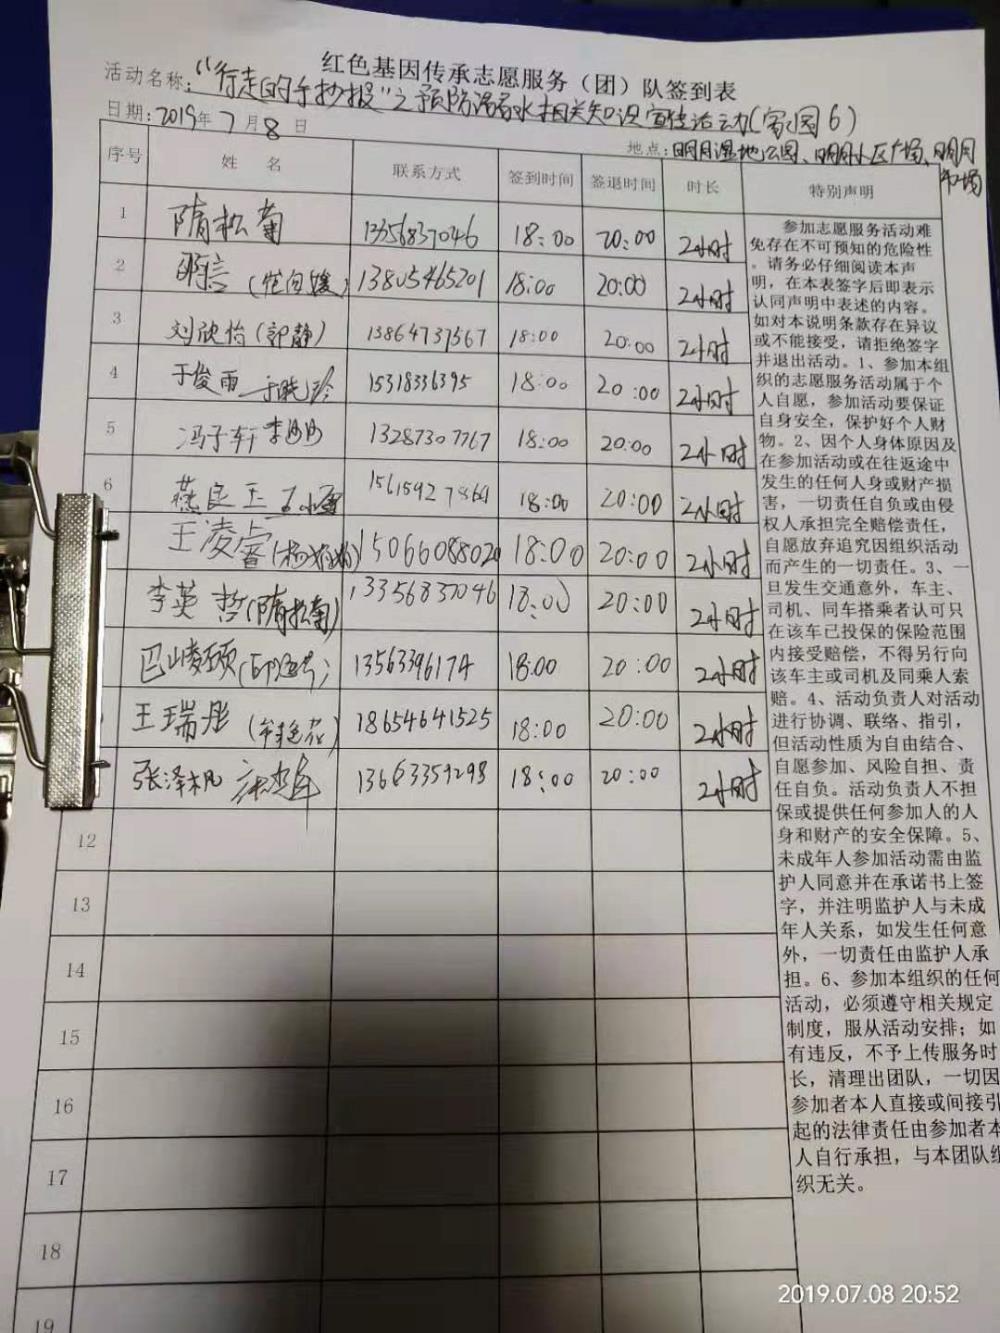 红色基因传承志愿服务（团）队签到表
活动名称：“行走的手抄报”之预防溺水相关知识宣传活动（ 图6）
日期：2019年7月8日
地点：明月湿地公园、明月小区广场、明月市场
序号 姓 名 联系方式 签到时间 签退时间 时长 特别声明
1 隋松菊 13356837046 18:00 20:00 2小时
2 13805465201 18:00 20:00 2小时
3 刘欣怡（郭静） 13864737567 18:00 20:00 2小时
4 于俊雨 于晓玲 15318336395 18:00 20:00 2小时
5 冯子轩 李 13287307767 18:00 20:00 2小时
6 燕良玉 18:00 20:00 2小时
王凌睿 15066088020 18:00 20:00 2小时
李英哲（隋松菊） 13356837046 18:00 20:00 2小时
巴崚硕 13563396174 18:00 20:00 2小时
王瑞彤 18654641525 18:00 20:00 2小时
张泽帆 13663359298 18:00 20:00 2小时
12
13
14
15
16
17
18
19
参加志愿服务活动难
免存在不可预知的危险性
。请务必仔细阅读本声
明，在本表签字后即表示
认同声明中表述的内容。
如对本说明条款存在异议
或不能接受，请拒绝签字
并退出活动。1、参加本组
织的志愿服务活动属于个
人自愿，参加活动要保证
自身安全，保护好个人财
物。2、因个人身体原因及
在参加活动或在往返途中
发生的任何人身或财产损
害，一切责任自负或由侵
权人承担完全赔偿责任，
自愿放弃追究因组织活动
而产生的一切责任。3、一
旦发生交通意外，车主、
司机、同车搭乘者认可只
在该车已投保的保险范围
内接受赔偿，不得另行向
该车主或司机及同乘人索
赔。4、活动负责人对活动
进行协调、联络、指引，
但活动性质为自由结合、
自愿参加、风险自担、责
任自负。活动负责人不担
保或提供任何参加人的人
身和财产的安全保障。5、
未成年人参加活动需由监
护人同意并在承诺书上签
字，并注明监护人与未成
年人关系，如发生任何意
外，一切责任由监护人承
担。6、参加本组织的任何
活动，必须遵守相关规定
制度，服从活动安排；如
有违反，不予上传服务时
长，清理出团队，一切因
参加者本人直接或间接引
起的法律责任由参加者本
人自行承担，与本团队组
织无关。
2019.07.08 20:52